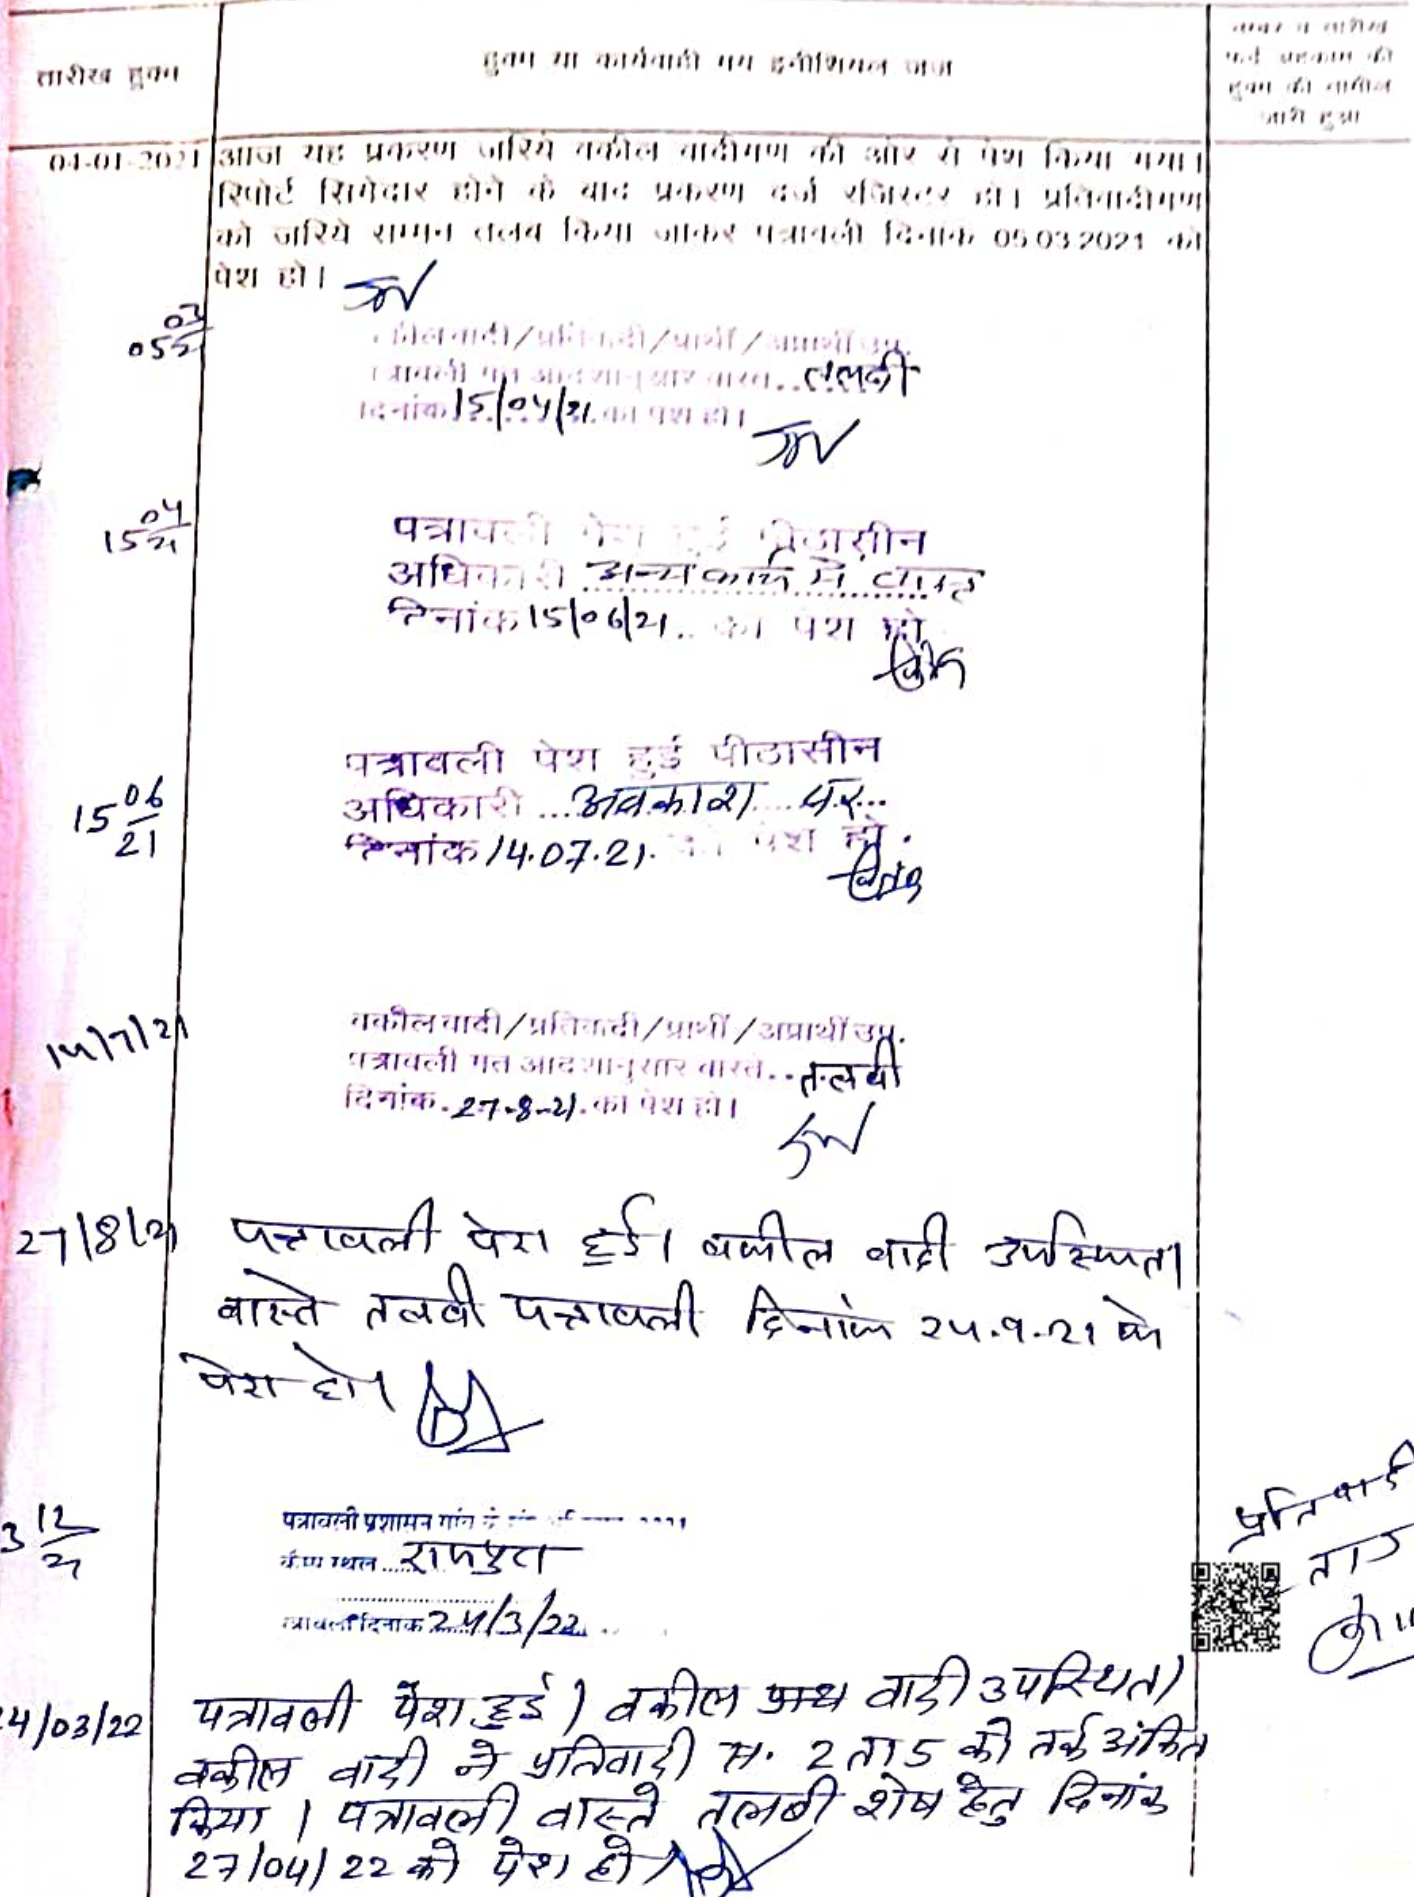 तारीख हुक्म
हुक्म या कार्यवाही मय इनीशियल जज
नम्बर व तारीख
हुक्म की तामील
जारी हुआ
04-01-2021
आज यह प्रकरण जरिये वकील वादीगण की ओर से पेश किया गया।
रिपोर्ट सिगेदार होने के बाद प्रकरण दर्ज रजिस्टर हो। प्रतिवादीगण
को जरिये सम्मन तलब किया जाकर पत्रावली दिनांक 05.03.2021 को
पेश हो।
05 03/21
वादी/प्रतिवादी/प्रार्थी/अप्रार्थी उप.
वास्ते.. तलबी
दिनांक 15/04/21 को पेश हो।
15 04/21
पत्रावली पेश हुई पीठासीन
अधिकारी अन्य कार्य में व्यस्त
दिनांक 15/06/21.. को पेश हो
15 06/21
पत्रावली पेश हुई पीठासीन
अधिकारी ...अवकाश पर...
दिनांक 14.07.21. को पेश हो.
14/7/21
वकील वादी/प्रतिवादी/प्रार्थी/अप्रार्थी उप.
पत्रावली गत आदेशानुसार वास्ते.. तलबी
दिनांक. 27-8-21. को पेश हो।
27/8/21
पत्रावली पेश हुई। वकील वादी उपस्थित।
वास्ते तलबी पत्रावली दिनांक 24.9.21 को
पेश हो।
3 12/21
पत्रावली प्रशासन गांव 2021
कैम्प स्थल.....
पत्रावली दिनांक 24/3/22
प्रतिवादी
2 ता 5
24/03/22
पत्रावली पेश हुई। वकील वादी उपस्थित।
वकील वादी ने प्रतिवादी स. 2 ता 5 को तर्क अंकित
किया। पत्रावली वास्ते तलबी शेष हेतु दिनांक
27/04/22 को पेश हो।